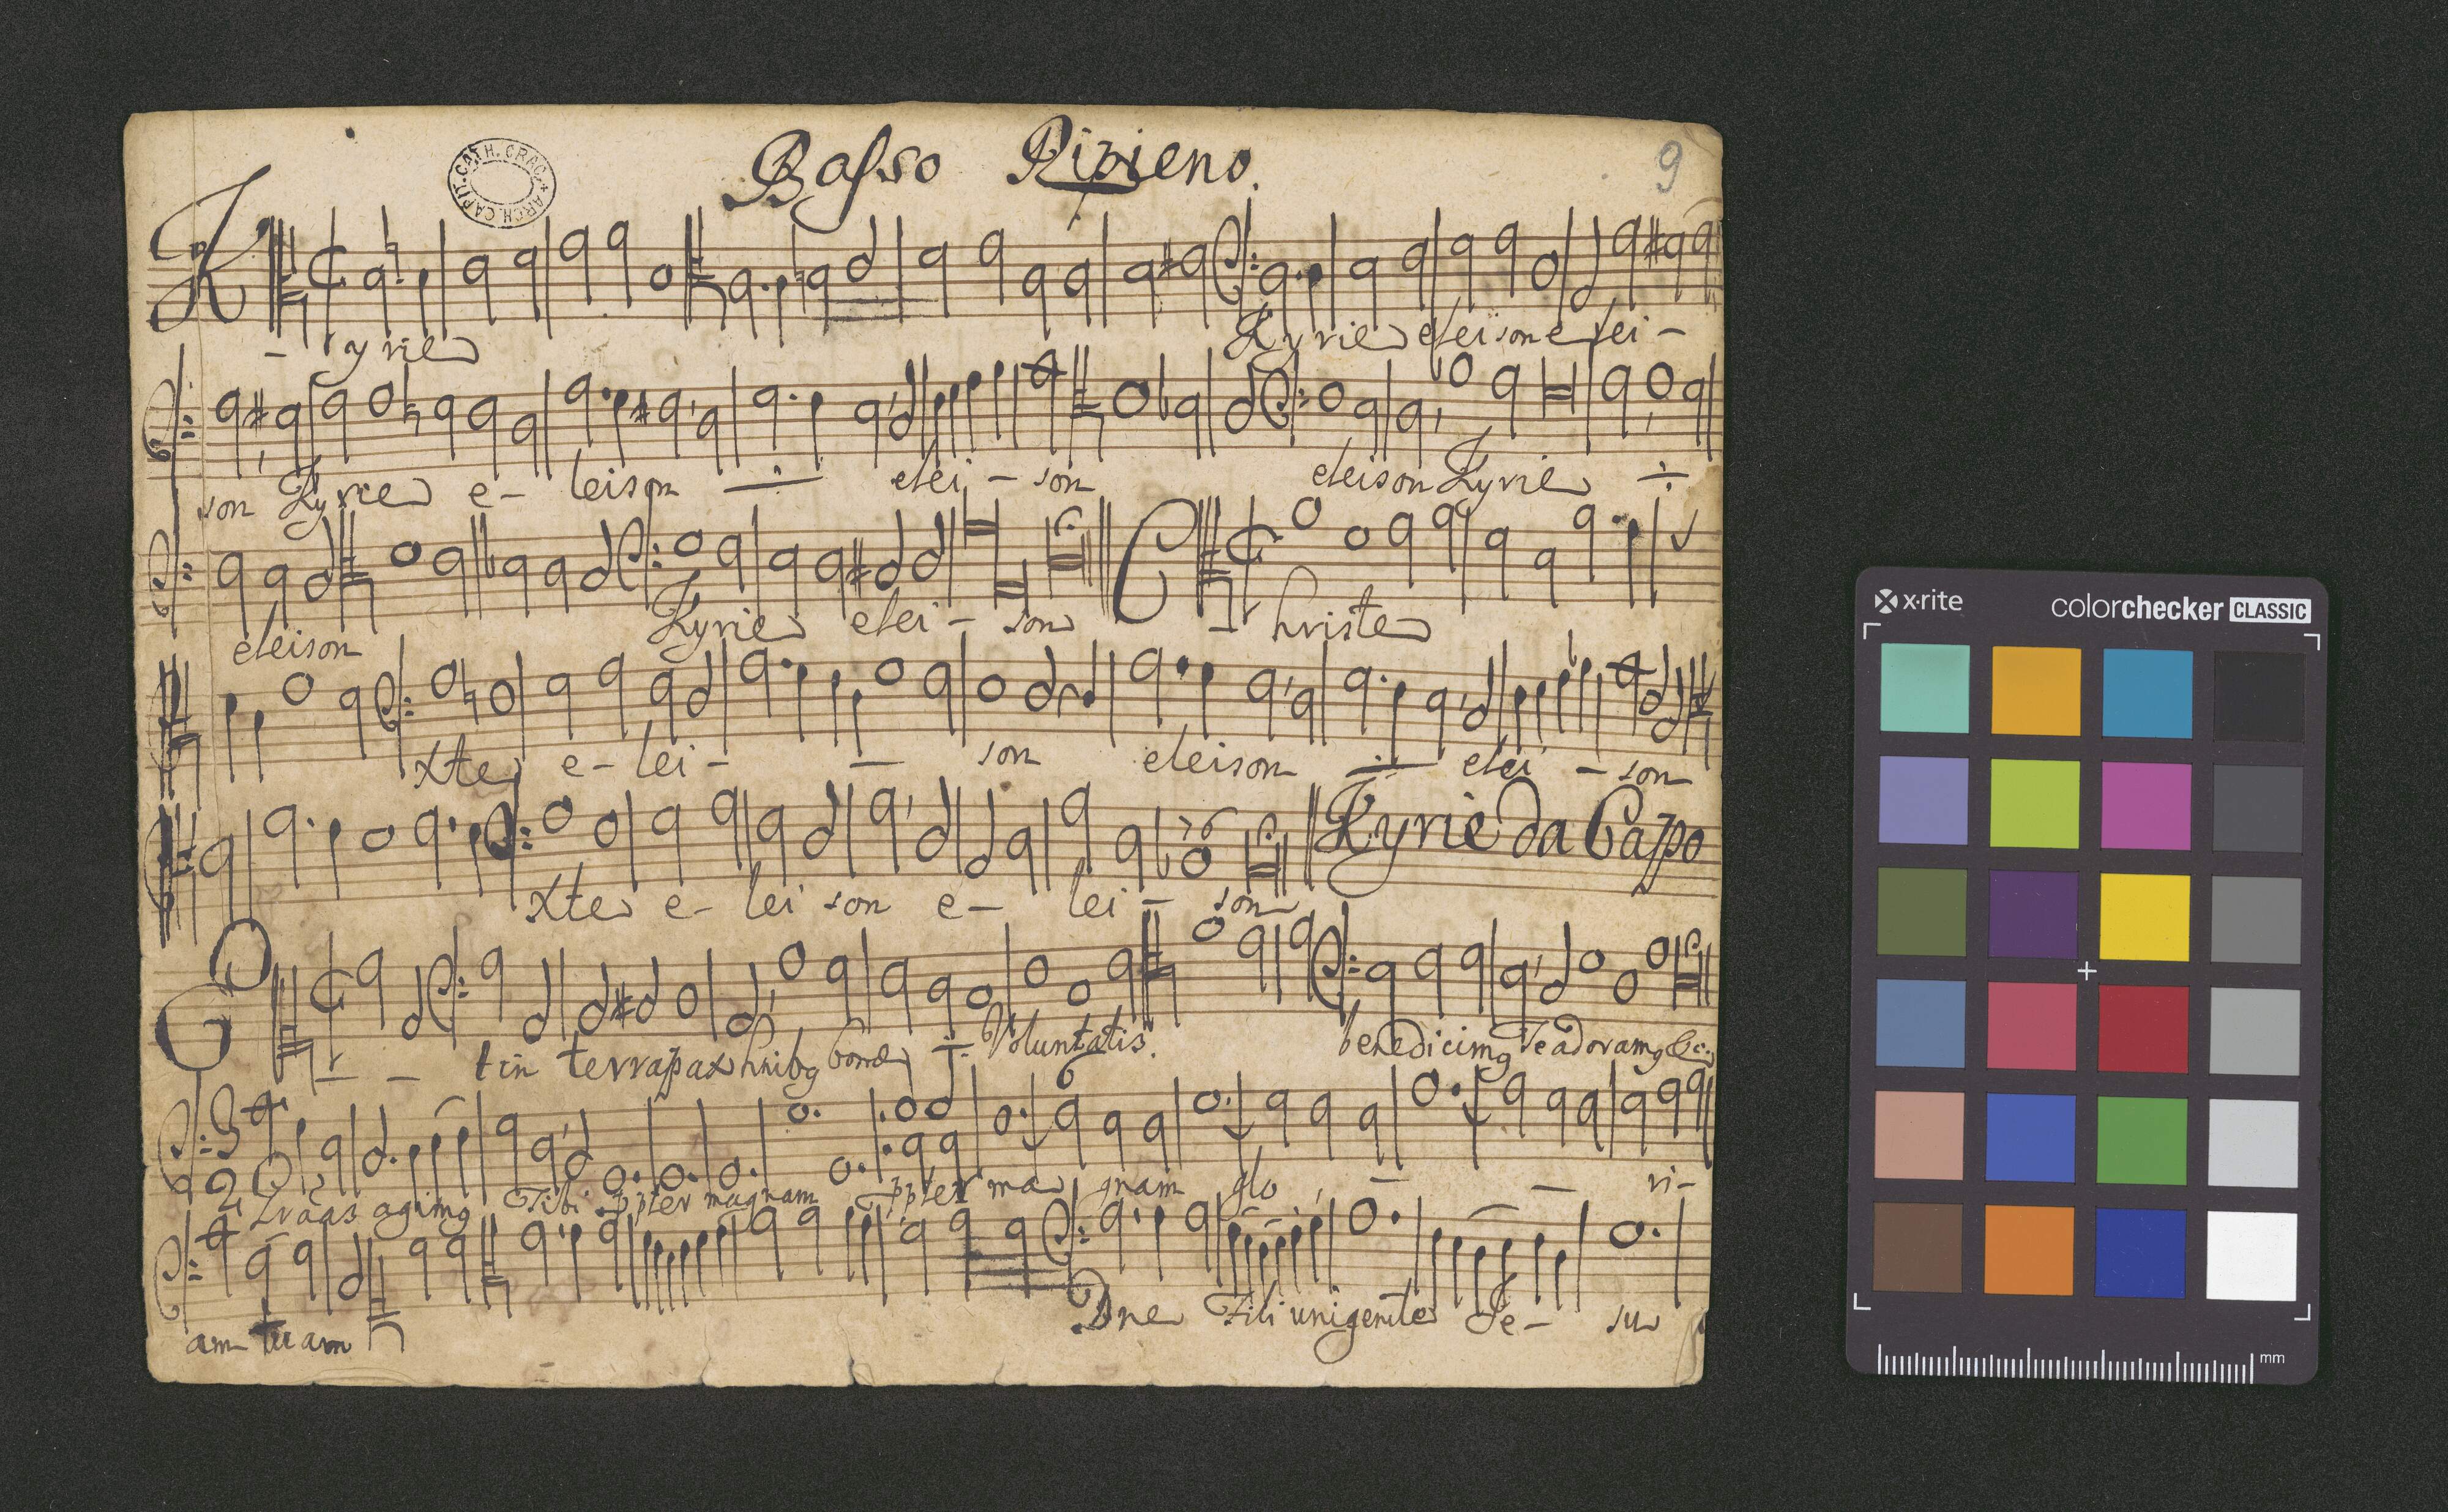 Basso Ripieno.
9
CAPIT. CATH. CRAC. ARCH.
Kyrie Kyrie eleison elei-
son Kyrie e- leison elei - son eleison Kyrie
eleison Kyrie elei - son Christe
xte e- lei - son eleison elei - son
xte e- lei son e- lei - son Kyrie da Capo
Et in terra pax hnibg bonæ Voluntatis. benedicimg Te adoramg &c.
Graãs agimg Tibi ppter magnam ppter ma gnam glo ri-
am tuam Dne Fili unigenite Je- su
x·rite
colorchecker CLASSIC
mm